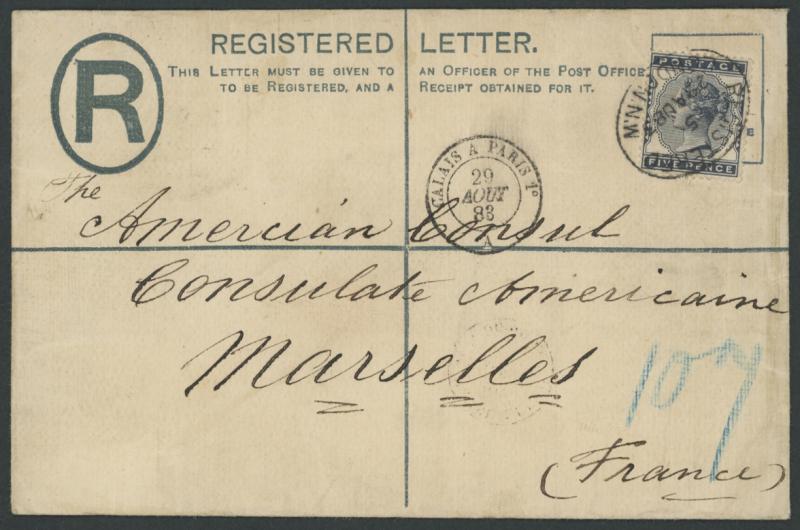 REGISTERED LETTER.
THIS LETTER MUST BE GIVEN TO AN OFFICER OF THE POST OFFICE
TO BE REGISTERED, AND A RECEIPT OBTAINED FOR IT.
R
POSTAGE
FIVE PENCE
E
CALAIS A PARIS 1º
29
AOUT
83
A
The
Amercián Consul
Consulate Americaine
Marselles
107
(France)